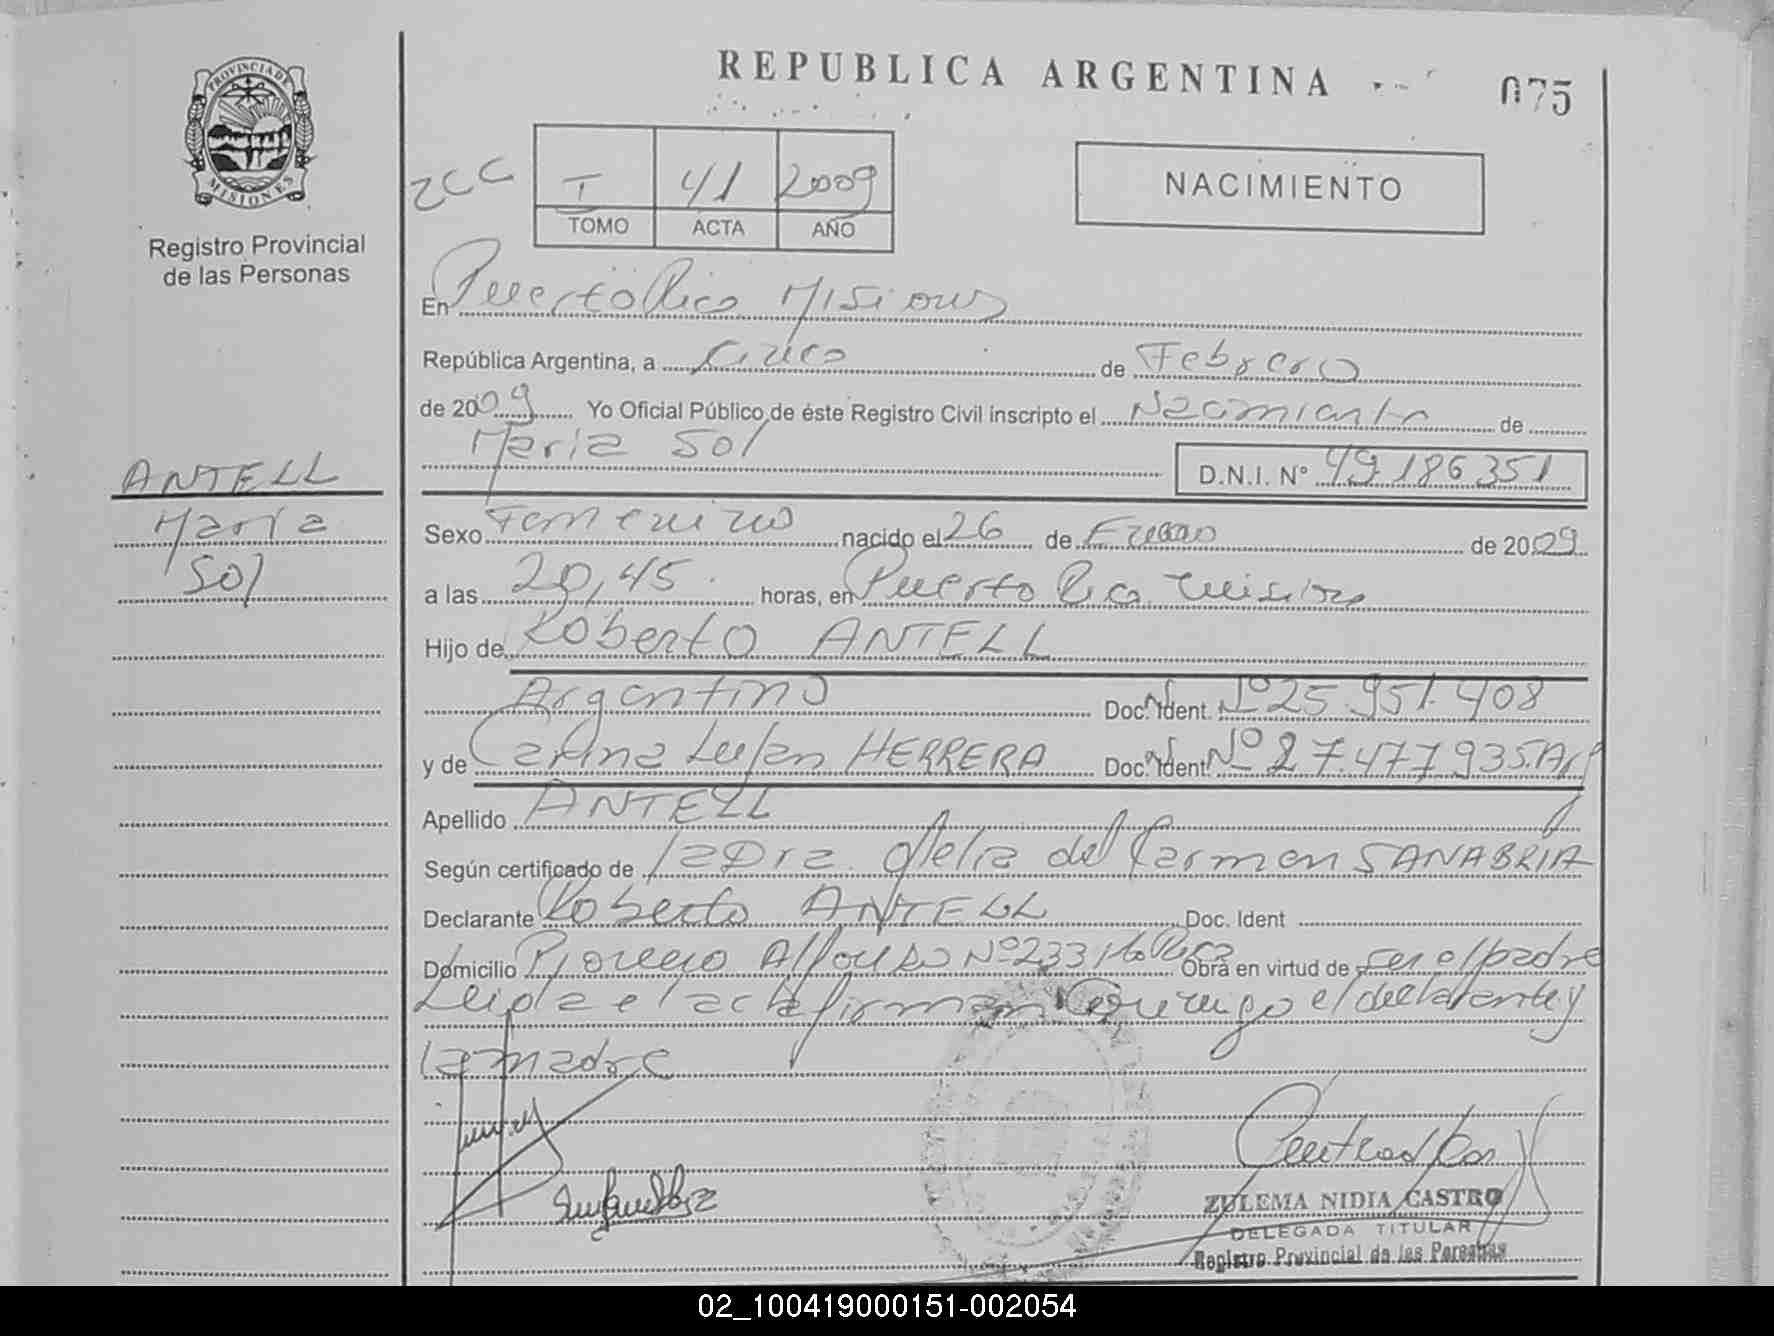 PROVINCIA DE
MISIONES
Registro Provincial
de las Personas
ANTELL
María
Sol
REPUBLICA ARGENTINA
075
ZCC
I 41 2009
TOMO ACTA AÑO
NACIMIENTO
En Puerto Rico Misiones
República Argentina, a cinco de Febrero
de 2009 Yo Oficial Público de éste Registro Civil inscripto el Nacimiento de
María Sol D.N.I. N° 49.186.351
Sexo Femenino nacido el 26 de Enero de 2009
a las 20,45 horas, en Puerto Rico Misiones
Hijo de Roberto ANTELL
Argentino Doc. Ident. N° 25.951.408
y de Carina Luján HERRERA Doc. Ident. N° 27.477.935. Arg
Apellido ANTELL
Según certificado de la Dra. Delia del Carmen SANABRIA
Declarante Roberto ANTELL Doc. Ident
Domicilio Alfonso N° 233 Pto Rico Obra en virtud de ser el padre
Leida el acta firman conmigo el declarante y
la madre
ZULEMA NIDIA CASTRO
DELEGADA TITULAR
Registro Provincial de las Personas
02_100419000151-002054